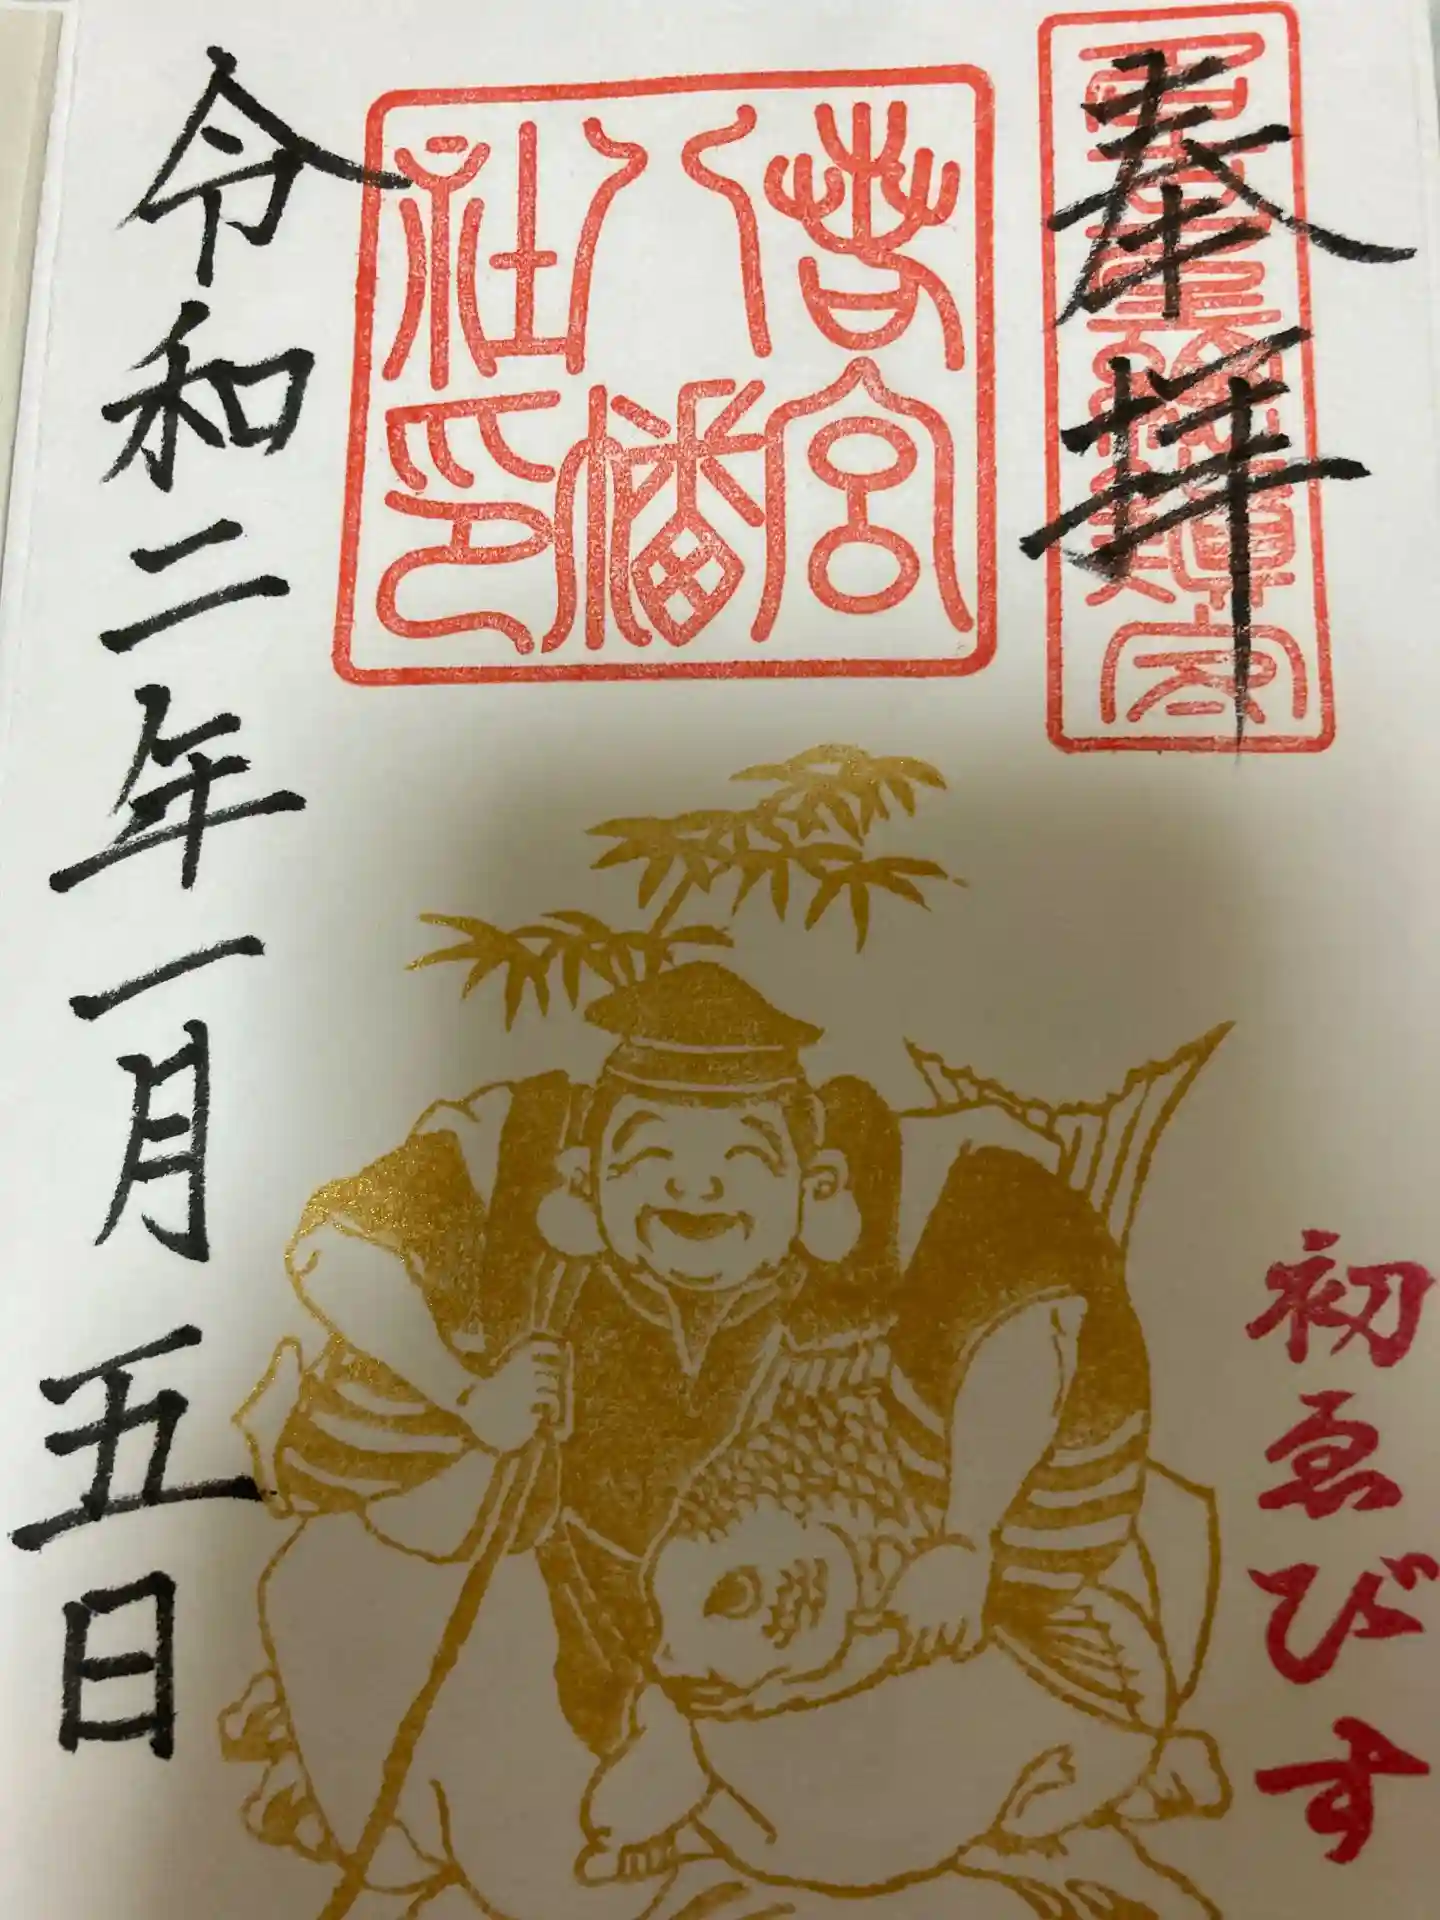 奉拝
若宮
八幡
社印
初ゑびす
令和二年一月五日